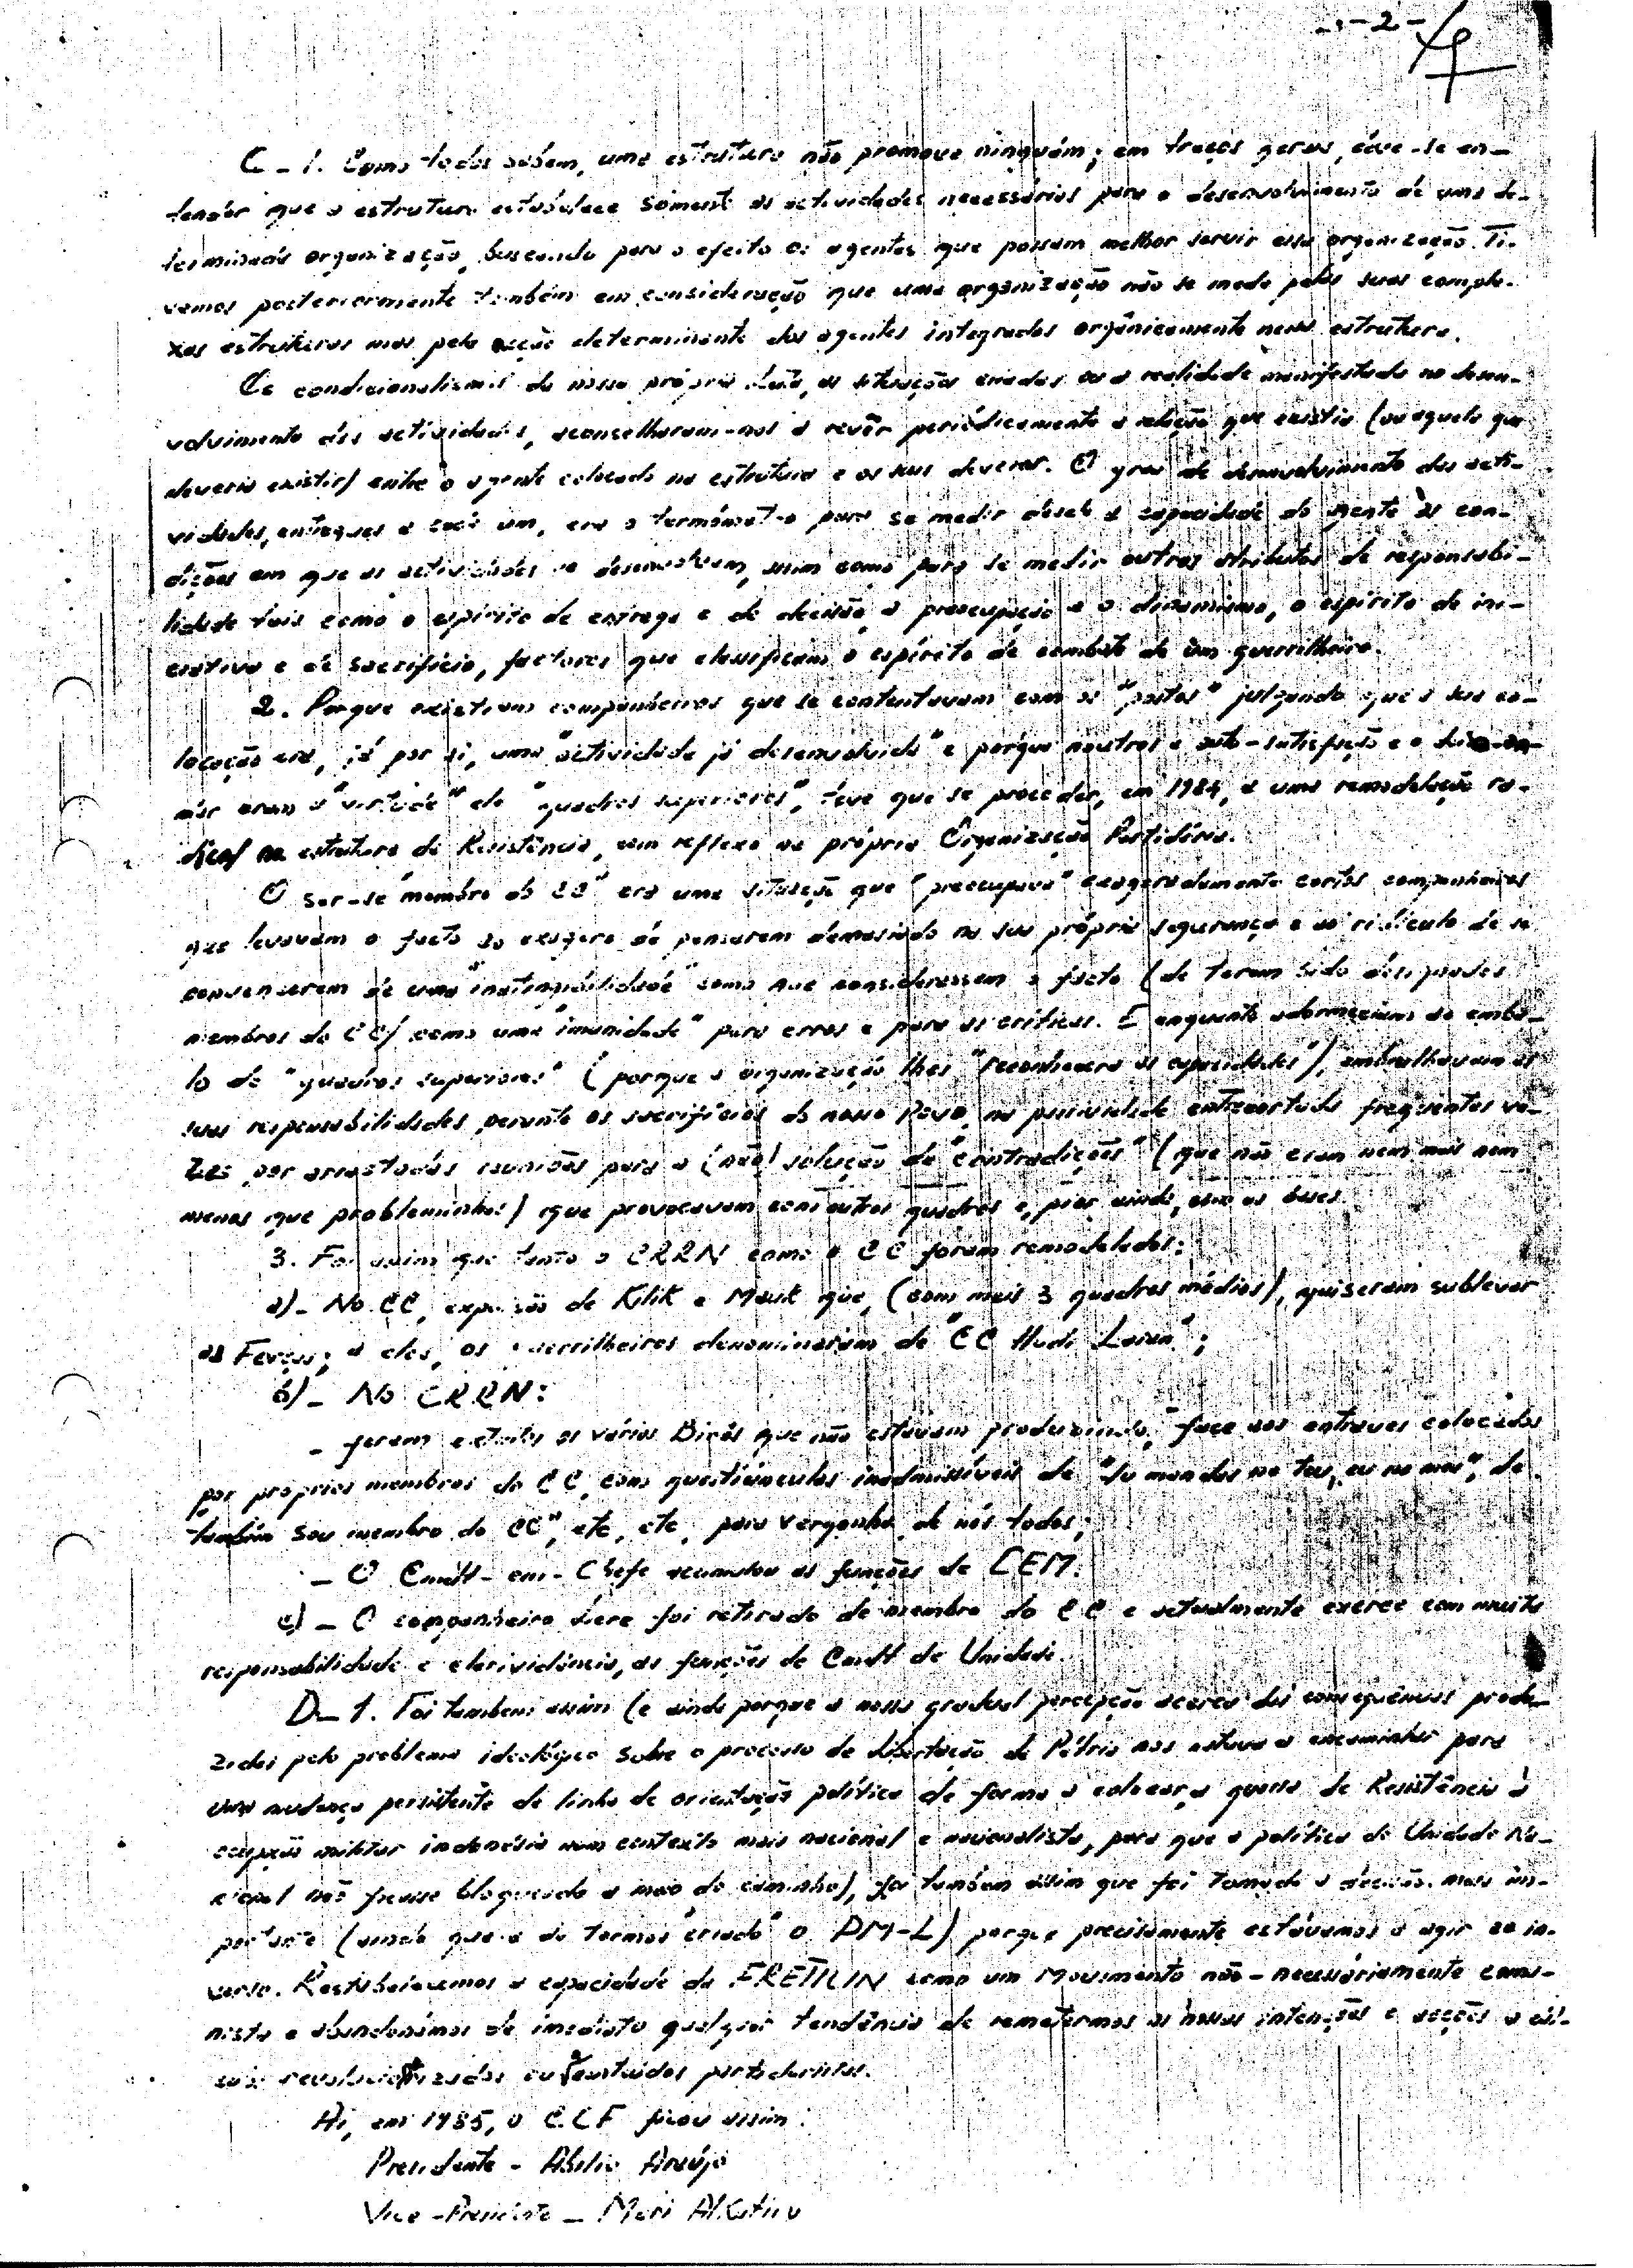 -2-
C - 1. Como todos sabem, uma estrutura não promove ninguém; em traços gerais, deve-se en-
tender que a estrutura estabelece somente as actividades necessárias para o desenvolvimento de uma de-
terminada organização, buscando para o efeito os agentes que possam melhor servir essa organização. Ti-
vemos posteriormente também em consideração que uma organização não se mede pelas suas comple-
xas estruturas mas pela acção determinante dos agentes integrados orgânicamente nessa estrutura.
Os condicionalismos da nossa própria luta, as situações criadas ou a realidade manifestada no desen-
volvimento das actividades, aconselharam-nos a revêr periódicamente a relação que existia (ou aquela que
deveria existir) entre o agente colocado na estrutura e os seus deveres. O grau de desenvolvimento das acti-
vidades, entregues a cada um, era o termómetro para se medir desde a capacidade do agente às con-
dições em que as actividades se desenvolviam, assim como para se medir outros atributos de responsabi-
lidade tais como o espírito de entrega e de decisão, a preocupação e o dinamismo, o espírito de ini-
ciativa e de sacrifício, factores que classificam o espírito de combate de um guerrilheiro.
2. Porque existiam companheiros que se contentavam com os "postos" julgando que a sua co-
locação era, já por si, uma "actividade já desenvolvida" e porque noutros a auto-satisfação e o
eram a "virtude" de "quadros superiores", teve que se proceder, em 1984, a uma remodelação ra-
dical na estrutura da Resistência, com reflexo na própria Organização Partidária.
O ser-se "membro do CC" era uma situação que "preocupava" exageradamente certos companheiros
que levavam o facto ao exagero de pensarem demasiado na sua própria segurança e ao ridículo de se
convencerem de uma "inatingibilidade" como que considerassem o facto (de terem sido designados
membros do CC) como uma "imunidade" para erros e para as críticas. E enquanto adormeciam ao emba-
lo de "quadros superiores" (porque a organização lhes "reconhecera as capacidades"), embrulhavam as
suas responsabilidades perante os sacrifícios do nosso Povo, na passividade entrecortada frequentes ve-
zes por arrastadas reuniões para a (não) solução de "contradições" (que não eram nem mais nem
menos que probleminhas) que provocavam com outros quadros e, pior ainda, com as bases.
3. Foi assim que tanto o CRRN como o CC foram remodelados:
a)- No CC, expulsão de Kilik e Mauk que, (com mais 3 quadros médios), quiseram sublevar
as Forças; a eles, os guerrilheiros denominaram de "CC Hudi Laran";
b)- No CRRN:
- foram extintos os vários que não estavam produzindo, face aos entraves colocados
por próprios membros do CC, com questiúnculas inadmissíveis de "tu mandas no teu, eu no meu", de
também sou membro do CC", etc, etc, para vergonha de nós todos;
- O Cmdt-em-Chefe acumulou as funções de CEM.
c) - O companheiro Lere foi retirado de membro do CC e actualmente exerce com muita
responsabilidade e clarividência, as funções de Cmdt de Unidade.
D- 1. Foi também assim (e ainda porque a nossa gradual percepção acerca das consequências produ-
zidas pelo problema ideológico sobre o processo de Libertação da Pátria nos estava a encaminhar para
uma mudança persistente de linha de orientação política de forma a colocar a guerra de Resistência à
ocupação militar indonésia num contexto mais nacional e nacionalista, para que a política de Unidade Na-
cional não ficasse bloqueada a meio do caminho), foi também assim que foi tomada a decisão mais im-
portante (ainda que a de termos "criado" o PM-L) porque precisamente estávamos a agir ao in-
verso. Restabelecemos a capacidade da FRETILIN como um Movimento não-necessáriamente comu-
nista e abandonámos de imediato qualquer tendência de remetermos as nossas intenções e acções a cál-
ou conteúdos partidaristas.
Aí, em 1985, o CCF ficou assim:
Presidente - Abílio Araújo
Vice-Presidente - Mari Alkatiri